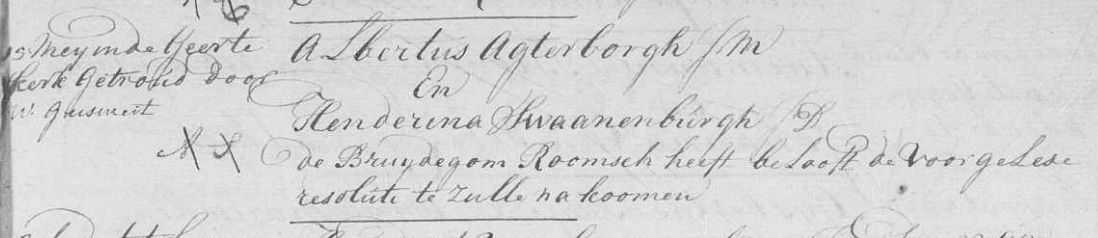 15 Mey in de Geerte
kerk Getroud door
W:
Albertus Agterborgh J M
En
Henderina Swaanenburgh J D
de Bruydegom Roomsch heeft belooft de voorgelese
resolute te zulle na koomen